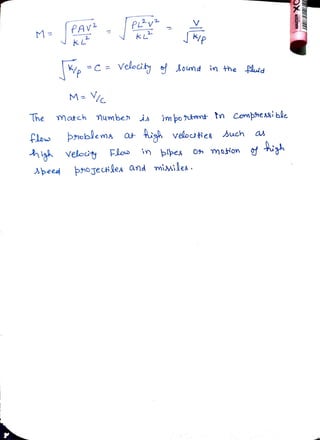 M = √(ρAV²/KL²) = √(ρL²V²/KL²) = V/√(K/ρ)
√(K/ρ) = C = Velocity of Sound in the fluid
M = V/C
The match number is important in compressible
flow problems at high velocities such as
high velocity flow in pipes or motion of high
speed projectiles and missiles.